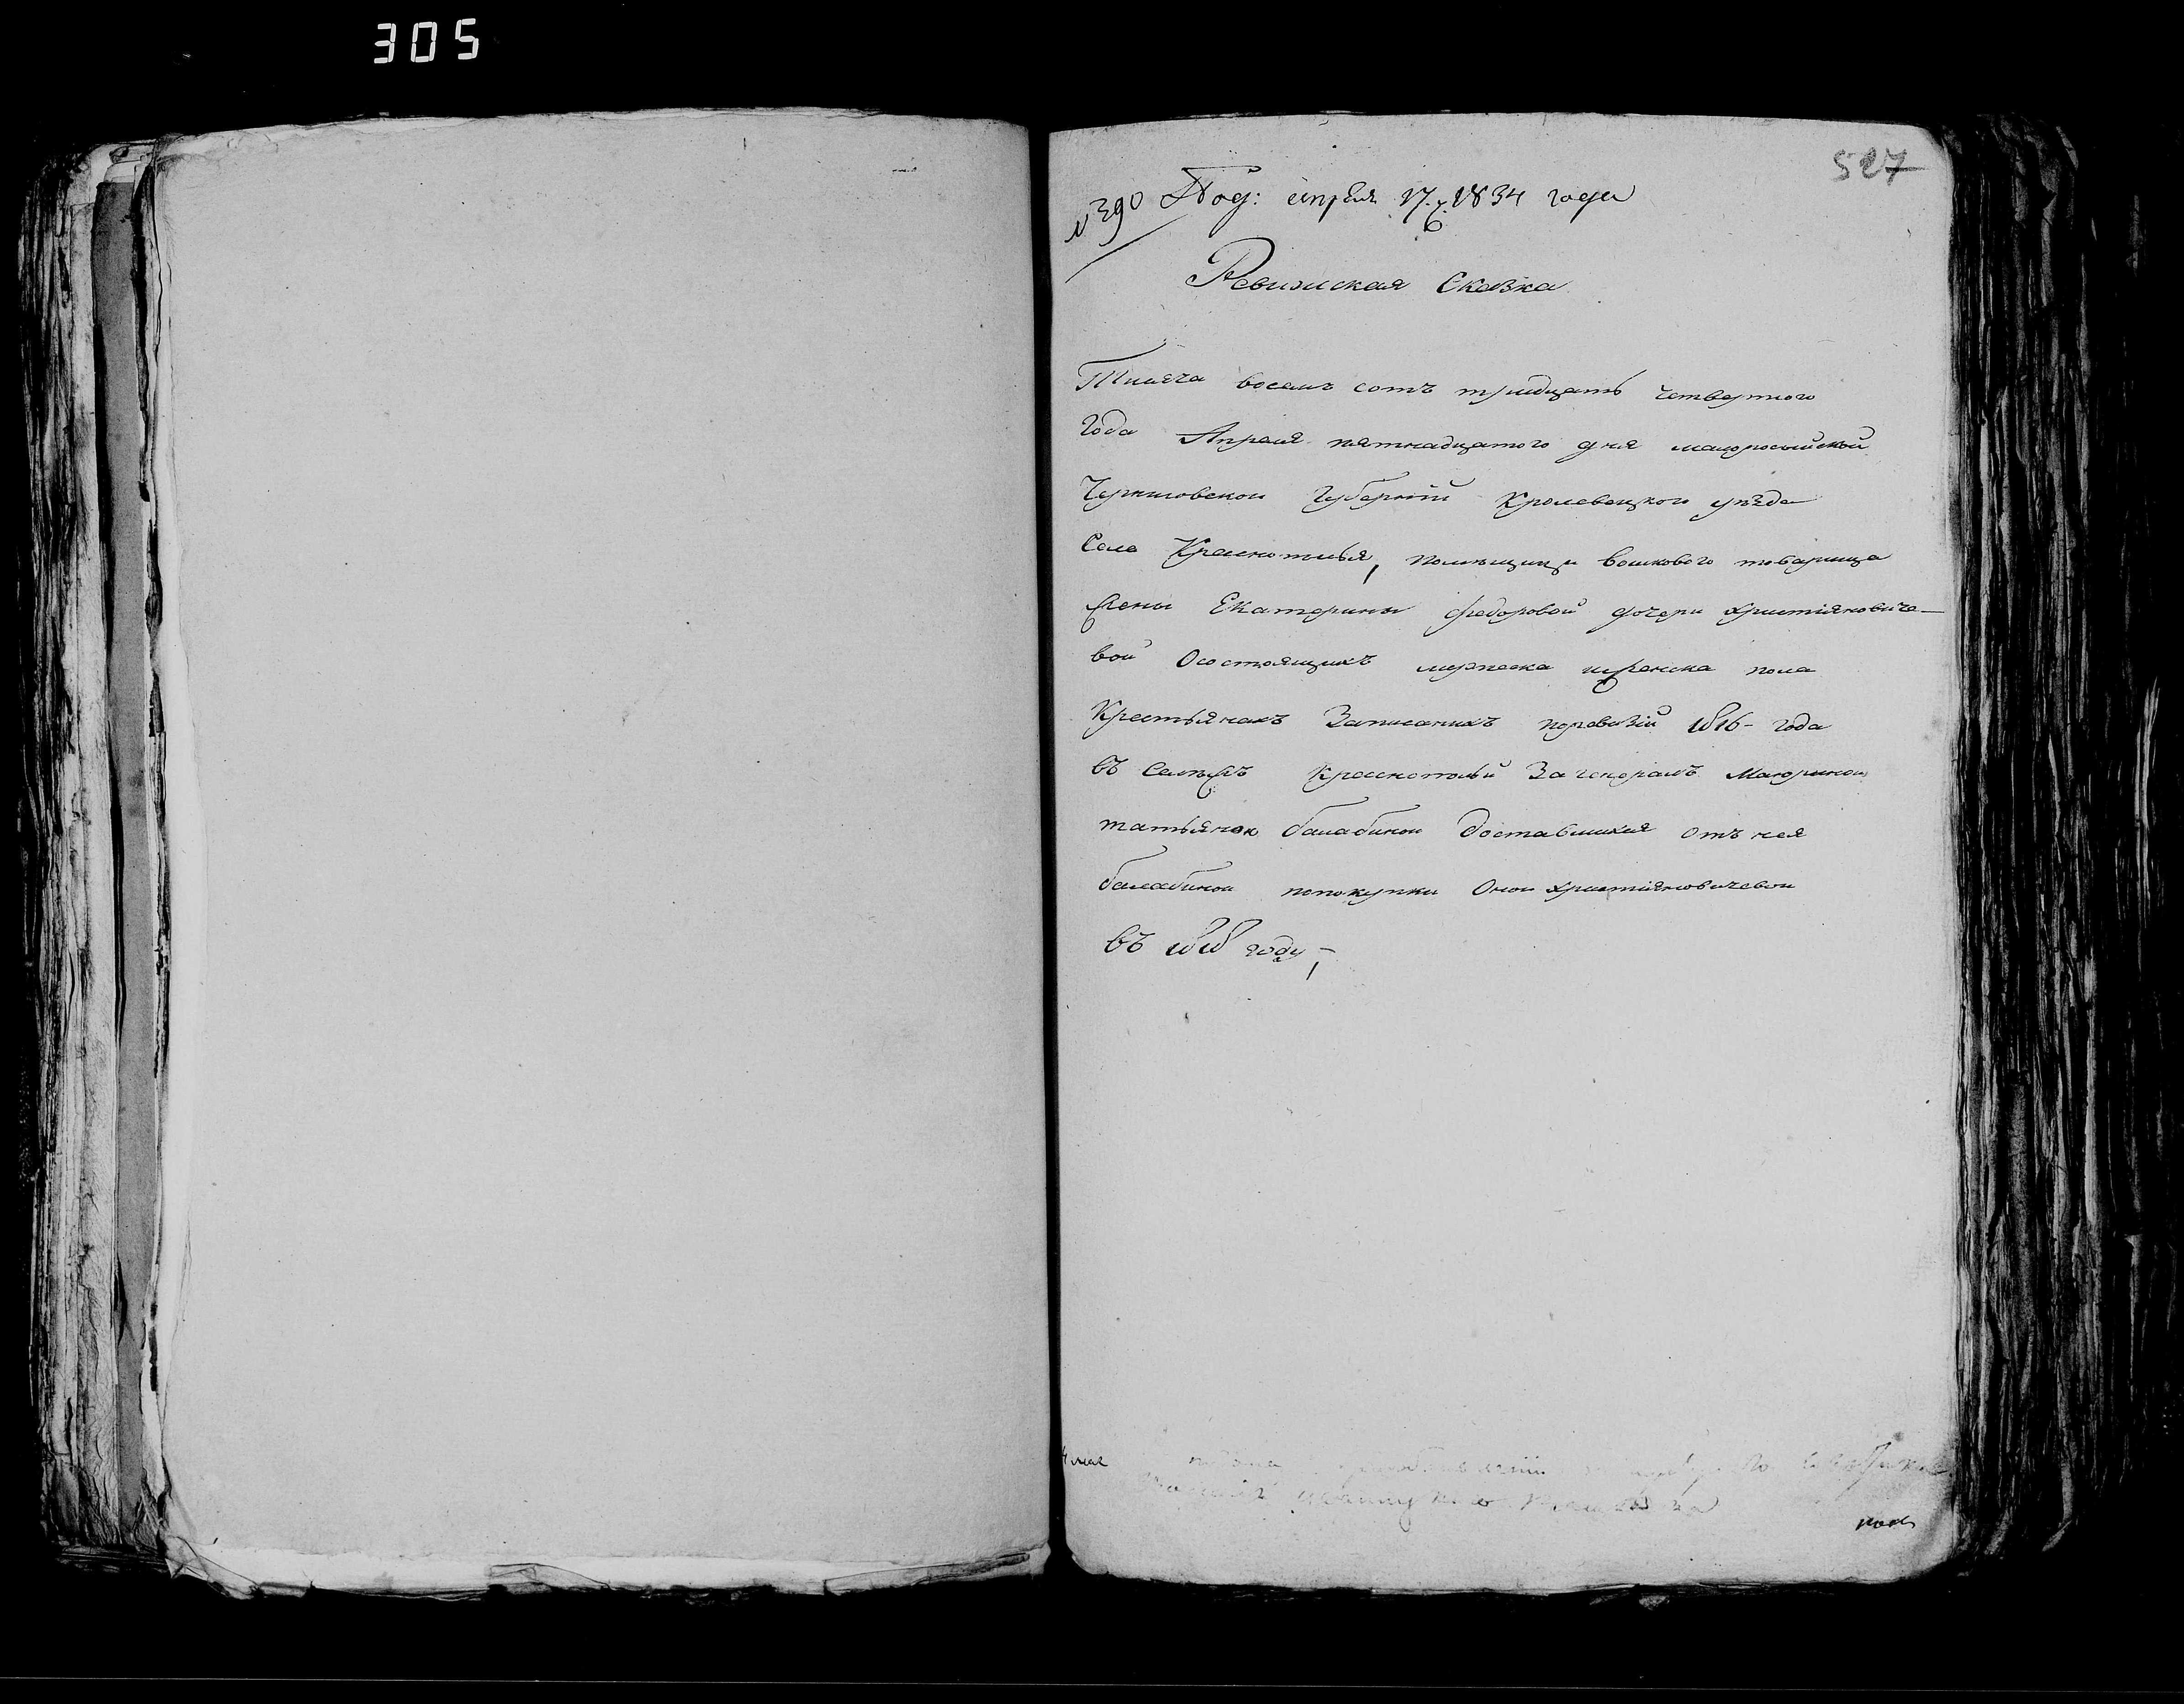 305
527
№ 390 Под: апреля 17.г. 1834 года
Ревизская Сказка
Тисяча восемъ сотъ тридцать четвертого
Года Апреля пятнадцатого дня малоросыйской
Черниговской Губернїи Кролевецкого уезда
Села Краснополья, помещици воискового товарища
жены Екатерины федоровой дочери христїяновиче-
вой Осостоящихъ мужеска иженска пола
Крестьянахъ Записаныхъ поревизїи 1816 - года
въ Селе Заген Маюриною
татьяною балабиною доставшихся отъ нея
балабиной попокупки Оной христїяновичевой
въ 1818 году,-